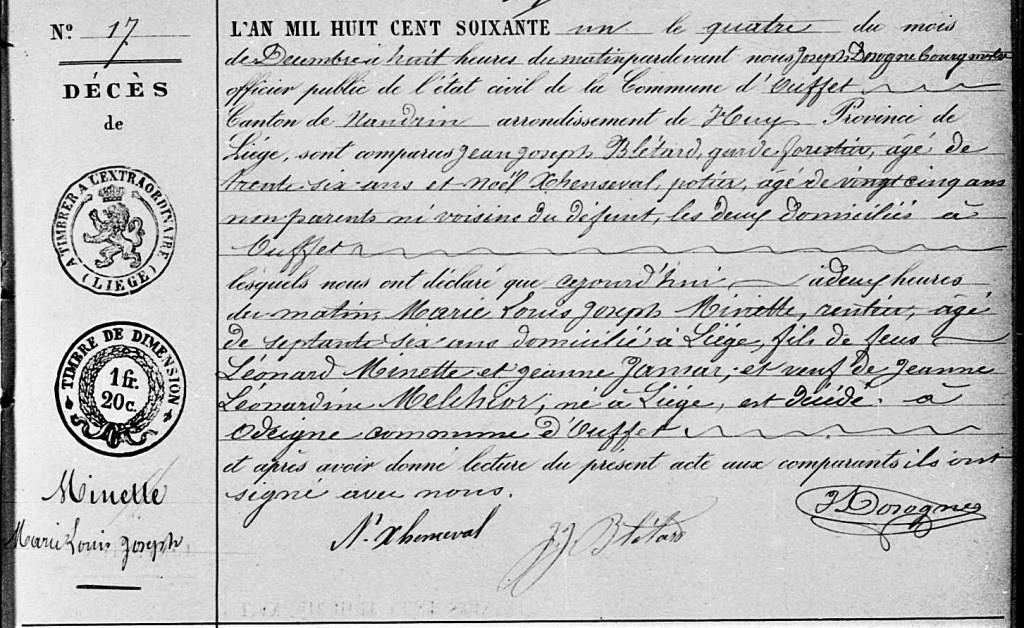 N° 17
DÉCÈS
de
A TIMBRER A L'EXTRAORDINAIRE
(LIEGE)
TIMBRE DE DIMENSION
1 fr.
20 c.
Minette
Marie Louis Joseph
L'AN MIL HUIT CENT SOIXANTE un le quatre du mois
de Décembre à huit heures du matin pardevant nous Joseph Dorogne bourgmestre
officier public de l'état civil de la Commune d'Ouffet
Canton de Nandrin arrondissement de Huy Province de
Liége, sont comparus Jean Joseph Blétard, garde forestier, âgé de
trente six ans et Noël Xhenseval, potier, âgé de vingt cinq ans
non parents ni voisins du défunt, les deux domiciliés à
Ouffet
lesquels nous ont déclaré que cejourd'hui à deux heures
du matin, Marie Louis Joseph Minette, rentier, âgé
de septante six ans domicilié à Liége, fils de feus
Léonard Minette et Jeanne Jamar, et veuf de Jeanne
Léonardine Melchior, né à Liége, est décédé à
Odeigne commune d'Ouffet
et après avoir donné lecture du présent acte aux comparants ils ont
signé avec nous.
N. Xhenseval
J J Blétard
J Dorogne